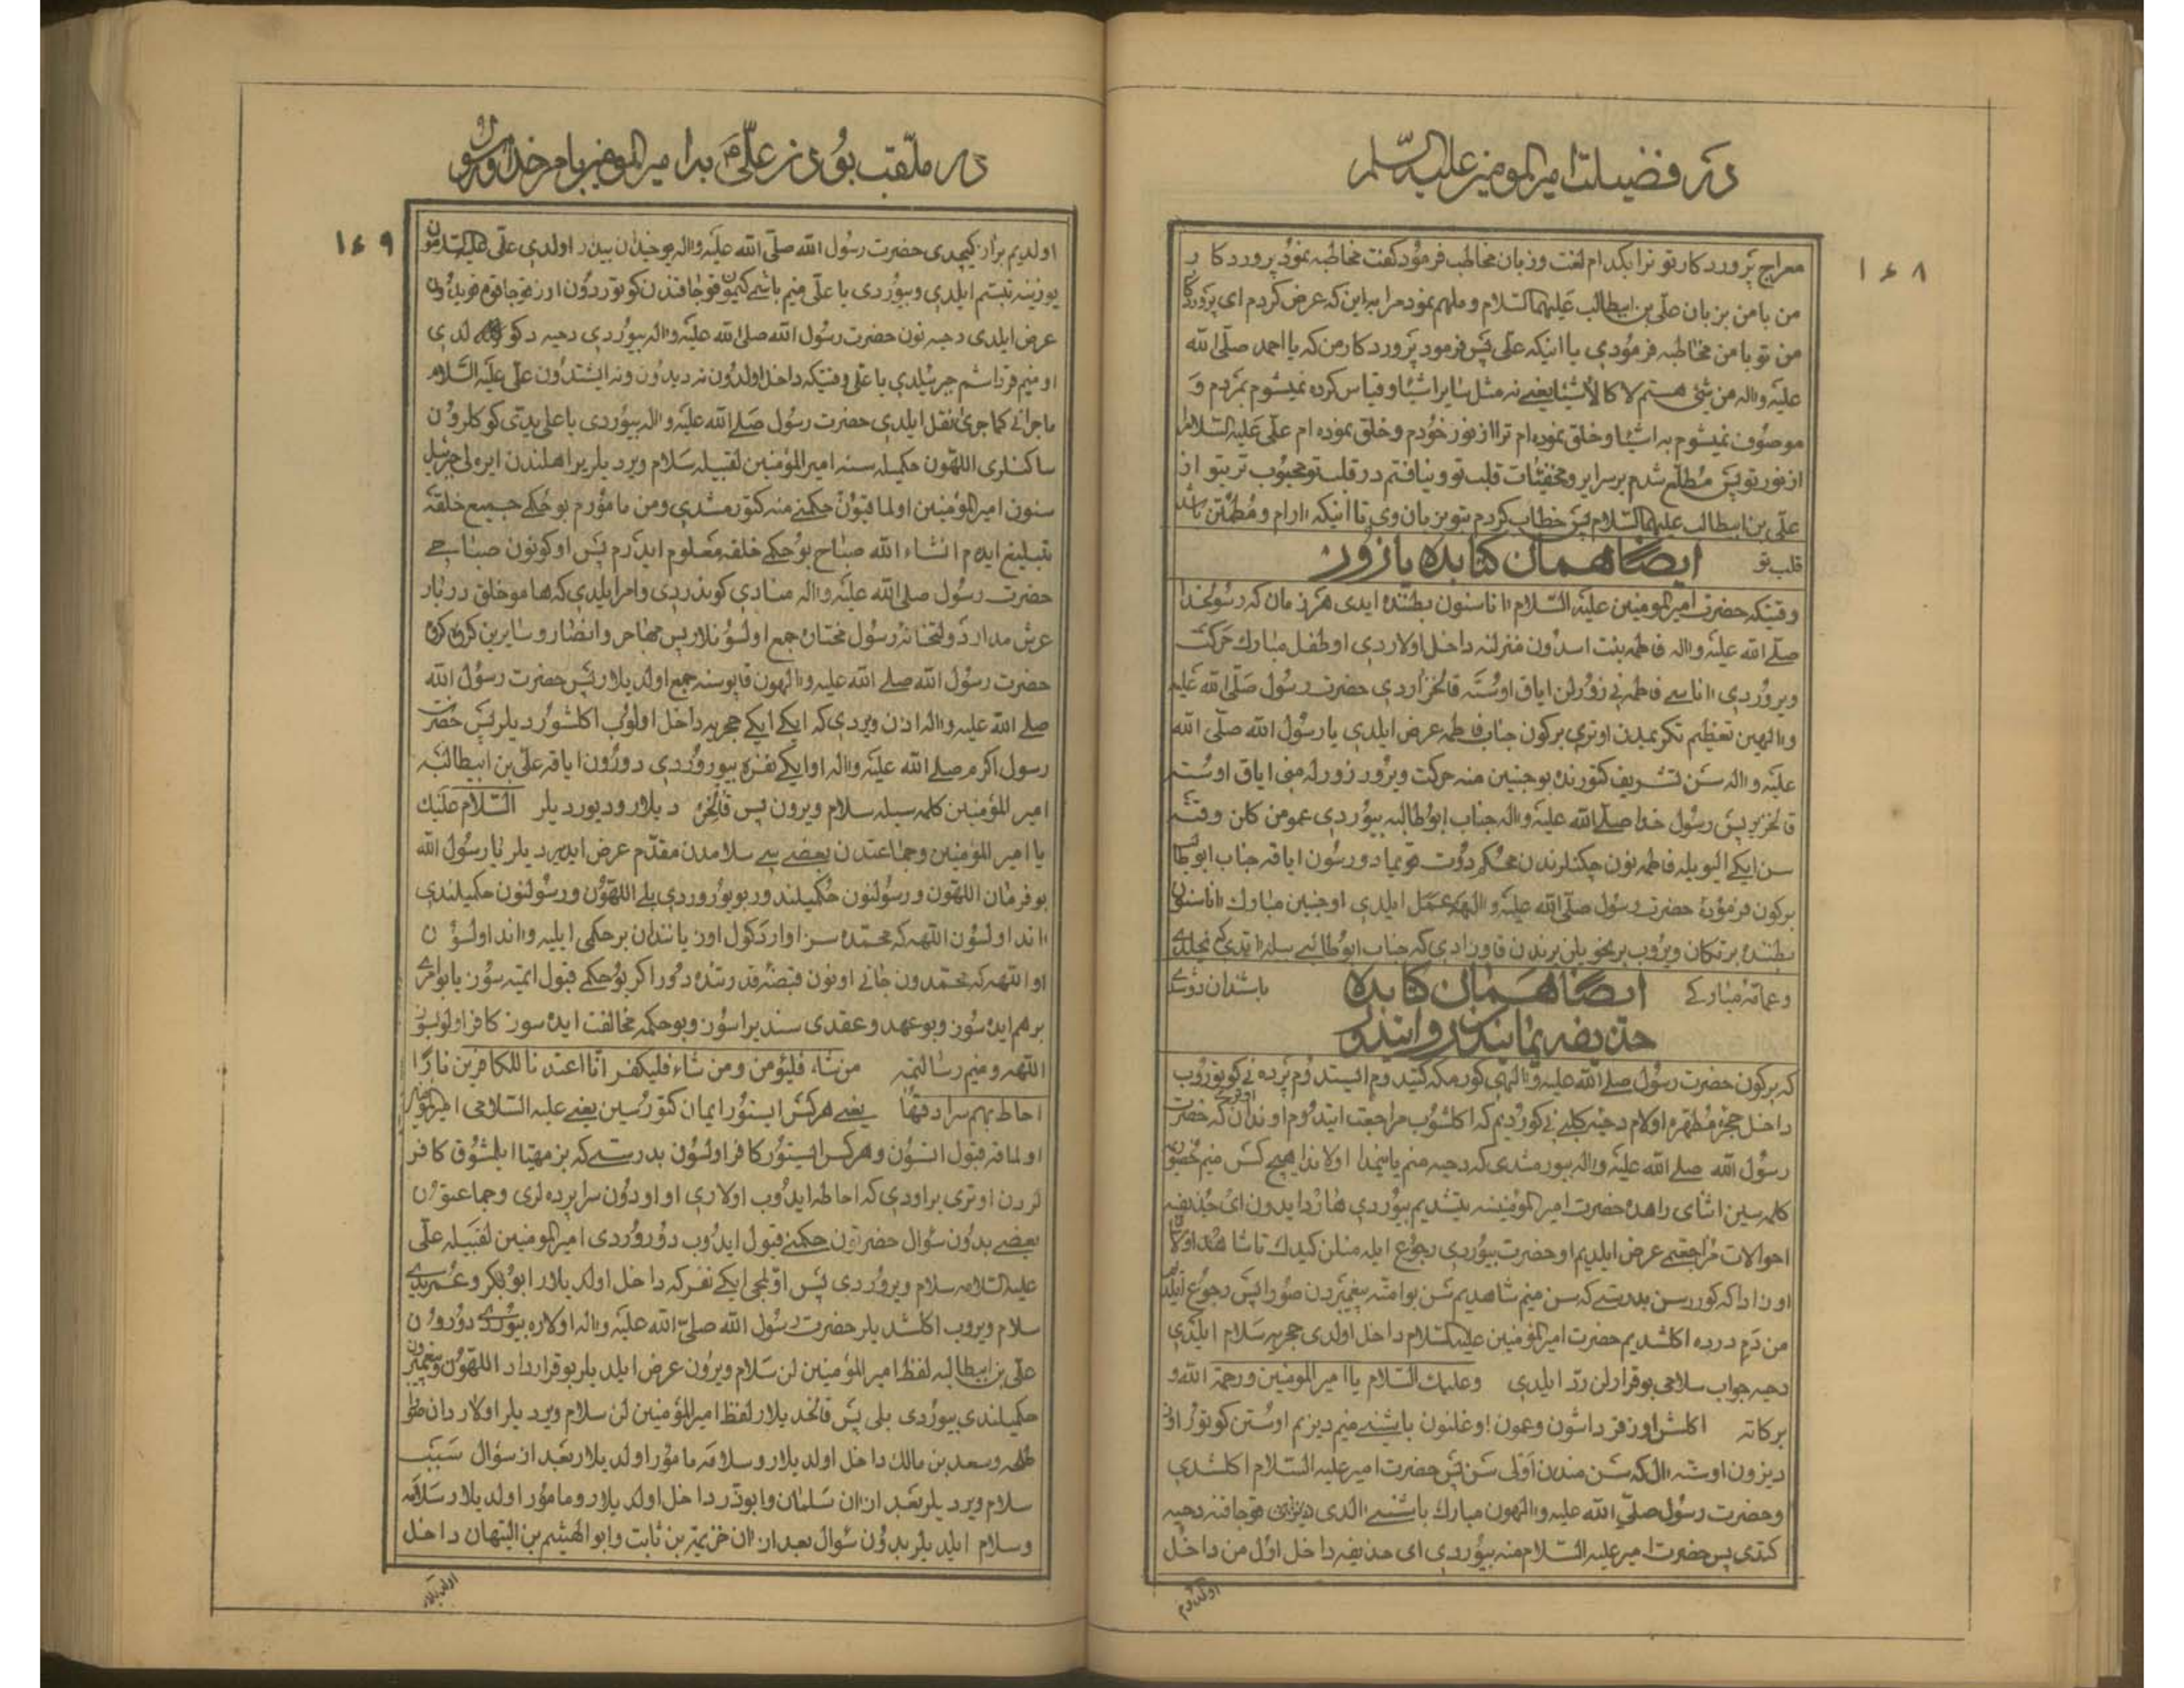 در فضیلت امیرالمومنین علیه السلام
۱۶۸
معراج پروردکار تو ترا بکدام لغت و زبان مخاطب فرمود کفت مخاطبه نمود پروردکار
من با من بزبان علی بن ابیطالب علیهما السلام و ملهم نمود مرا به این که عرض کردم ای پروردکار
من تو با من مخاطبه فرمودی یا اینکه علی پس فرمود پروردکار من که یا احمد صلی الله
علیه و اله من شیئ هستم لا کالأشیاء یعنے نه مثل سایر اشیا و قیاس کرده نمیشوم بمردم و
موصوف نمیشوم به اشیا و خلق نموده ام ترا از نور خودم و خلق نموده ام علی علیه السلام را
از نور تو پس مطلع شدم بر سرایر و مخفیات قلب تو و نیافتم در قلب تو محبوب تر بتو از
علی بن ابیطالب علیهما السلام پس خطاب کردم بتو بزبان وی تا اینکه ارام و مطمئن باشد
قلب تو ایضا همان کتابده یازور
وقتیکه حضرت امیرالمومنین علیه السلام اناسنون بطننده ایدی هر زمان که رسولخدا
صلے الله علیه و اله فاطمه بنت اسدون منزلنه داخل اولاردی او طفل مبارک حرکت
ویروردی اناسے فاطمه نی زورلن ایاق اوسته قالخزاردی حضرت رسول صلی الله علیه
و الهین تعظیم تکریمیدن اوتری برکون جناب فاطمه عرض ایلدی یا رسول الله صلی الله
علیه و اله سن تشریف کتورنده بو جنین منه حرکت ویرور زورله منی ایاق اوسته
قالخزیر پس رسول خدا صلے الله علیه و اله جناب ابوطالبه بیوردی عمو من کلن وقته
سن ایکے الیویله فاطمه نون چکنلرندن محکم دوت قویما دورسون ایاقه جناب ابوطالب
برکون فرموده حضرت رسول صلی الله علیه و الهه عمل ایلدی او جنین مبارک اناسنون
بطننده بر تکان ویروب بر نحویلن یرندن قاوزادی که جناب ابوطالبے
وعمامه مبارکے ایضا همان کتابده باشندان دوشدے
حذیفه یماینکدن روایتدو
که برکون حضرت رسول صلے الله علیه و الهی کورمکه کتیدوم ایستدوم پرده نی کوتوروب
داخل حجره مطهره اولام دحیه کلبے نی کوردیم که اکلشوب مراجعت ایتدوم اوندان که حضرت
رسول الله صلے الله علیه و اله بیورمشدی که دحیه منم یانیمدا اولاندا هیچ کس منیم حضوره
کلمه سین اثنای راهده حضرت امیرالمومنینه یتشدیم بیوردی هاردا ایدون ای حذیفه
احوالات مراجعتمے عرض ایلدیم او حضرت بیوردی رجوع ایله منلن کیدک تا شاهد اولا
من دم درده اکلشدیم حضرت امیرالمؤمنین علیه السلام داخل اولدی حجریه سلام ایلدی
دحیه جواب سلامی بو قرارلن رد ایلدی وعلیک السلام یا امیرالمومنین ورحمة الله و
برکاته اکلش اوز قرداشون وعمون اوغلنون باشنے منیم دیزیم اوستن کوتور اوز
دیزون اوسته ال که سن مندن اولی سن پس حضرت امیر علیه السلام اکلشدی
وحضرت رسول صلی الله علیه و الهون مبارک باشنے الدی دیزنون قوجاقنه دحیه
کتدی پس حضرت امیر علیه السلام منه بیوردی ای حذیفه داخل اول من داخل
اولدوم
در ملقب بودن علی بامیرالمومنین بامر خدا و رسول
۱۶۹
اولدیم براز کیچدی حضرت رسول الله صلی الله علیه و اله یوخیدن بیدار اولدی علی علیه السلامون
یوزینه تبسم ایلدی وبیوردی یا علی منیم باشمے کیمون قوجاقندن کوتوردون اوز قوجاقوه قویدون
عرض ایلدی دحیه نون حضرت رسول الله صلی الله علیه و اله بیوردی دحیه دکولدی
او منیم قرداشم جبرئیلدی یا علی وقتیکه داخل اولدون نه دیدون ونه ایشتدون علی علیه السلام
ماجرانے کما جری نقل ایلدی حضرت رسول صلے الله علیه و اله بیوردی یا علی یدی کوکلرون
ساکنلری اللهون حکمیله سنه امیرالمؤمنین لقبیله سلام ویردیلر یر اهلندن ایره لی جبرئیل
سنون امیرالمؤمنین اولماقیون حکمنے منه کتورمشدی ومن مامورم بو حکمے جمیع خلقه
تبلیغ ایدم انشاء الله صباح بو حکمے خلقه معلوم ایدرم پس او کونون صباحے
حضرت رسول صلی الله علیه و اله منادی کوندردی وامر ایلدی که هامو خلق دربار
عرش مدار دولتخانۀ رسول مختاره جمع اولسونلار پس مهاجر وانصار وسایرین کروه کروه
حضرت رسول الله صلے الله علیه و الهون قاپوسنه جمع اولدیلار پس حضرت رسول الله
صلے الله علیه و اله اذن ویردی که ایکے ایکے حجریه داخل اولوب اکلشوردیلر پس حضرت
رسول اکرم صلے الله علیه و اله او ایکے نفره بیوروردی دورون ایاقه علی بن ابیطالبه
امیرالمؤمنین کلمه سیله سلام ویرون پس قالخردیلار ودیوردیلر السلام علیک
یا امیرالمؤمنین وجماعتدن بعضے سے سلامدن مقدم عرض ایدیردیلر یا رسول الله
بو فرمان اللهون ورسولنون حکمیلندور بویوروردی بلے اللهون ورسولنون حکمیلندی
اند اولسون اللهه که محمده سزاوار دکول اوز یانندان بر حکمی ایلیه و اند اولسون
او اللهه که محمدون جانے اونون قبضۀ قدرتنده دور اکر بو حکمے قبول ایتمیه سوز یا بو امری
برهم ایده سوز وبو عهد وعقدی سندیراسوز وبو حکمه مخالفت ایده سوز کافر اولوبسوز
اللهه ومنیم رسالتمه من شاء فلیؤمن ومن شاء فلیکفر انا اعتدنا للکافرین نارا
احاط بهم سرادقها یعنے هرکس ایستور ایمان کتورسین یعنے علیه السلامی امیرالمؤمنین
اولماقه قبول اتسون وهرکس ایستور کافر اولسون بدرستے که بز مهیا ایلمشوق کافر
لردن اوتری بر اودی که احاطه ایدوب اولاری او اودون سراپرده لری وجماعتون
بعضے بدون سؤال حضرتون حکمنے قبول ایدوب دوروردی امیرالمومنین لقبیله علی
علیه السلامه سلام ویروردی پس اولمجی ایکے نفر که داخل اولدیلار ابوبکر وعمریدے
سلام ویروب اکلشدیلر حضرت رسول الله صلی الله علیه و اله اولاره بیوردے دورون
علی بن ابیطالبه لفظ امیرالمؤمنین لن سلام ویرون عرض ایلدیلر بو قرارداد اللهون وپیغمبرون
حکمیلندی بیوردی بلی پس قالخدیلار لفظ امیرالمؤمنین لن سلام ویردیلر اولاردان صورا
طلحه وسعد بن مالک داخل اولدیلار وسلامه مامور اولدیلار بعد از سؤال سبب
سلام ویردیلر بعد از ان سلمان وابوذر داخل اولدیلار ومامور اولدیلار سلامه
وسلام ایلدیلر بدون سؤال بعد از ان خزیمة بن ثابت وابو الهیثم بن التیهان داخل
اولدیلار